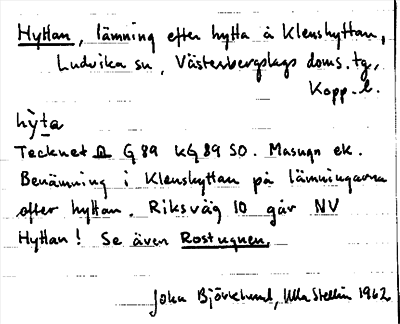 Hyttan, lämning efter hytta å Klenshyttan,
Ludvika sn, Västerbergslags doms. tg,
Kopp. l.
hy̆ta
Tecknet G 89 kG 89 SO. Masugn ek.
Benämning i Klenshyttan på lämningarna
efter hyttan. Riksväg 10 går NV
Hyttan! Se även Rostugnen.
John Björklund, Ulla Stellin 1962